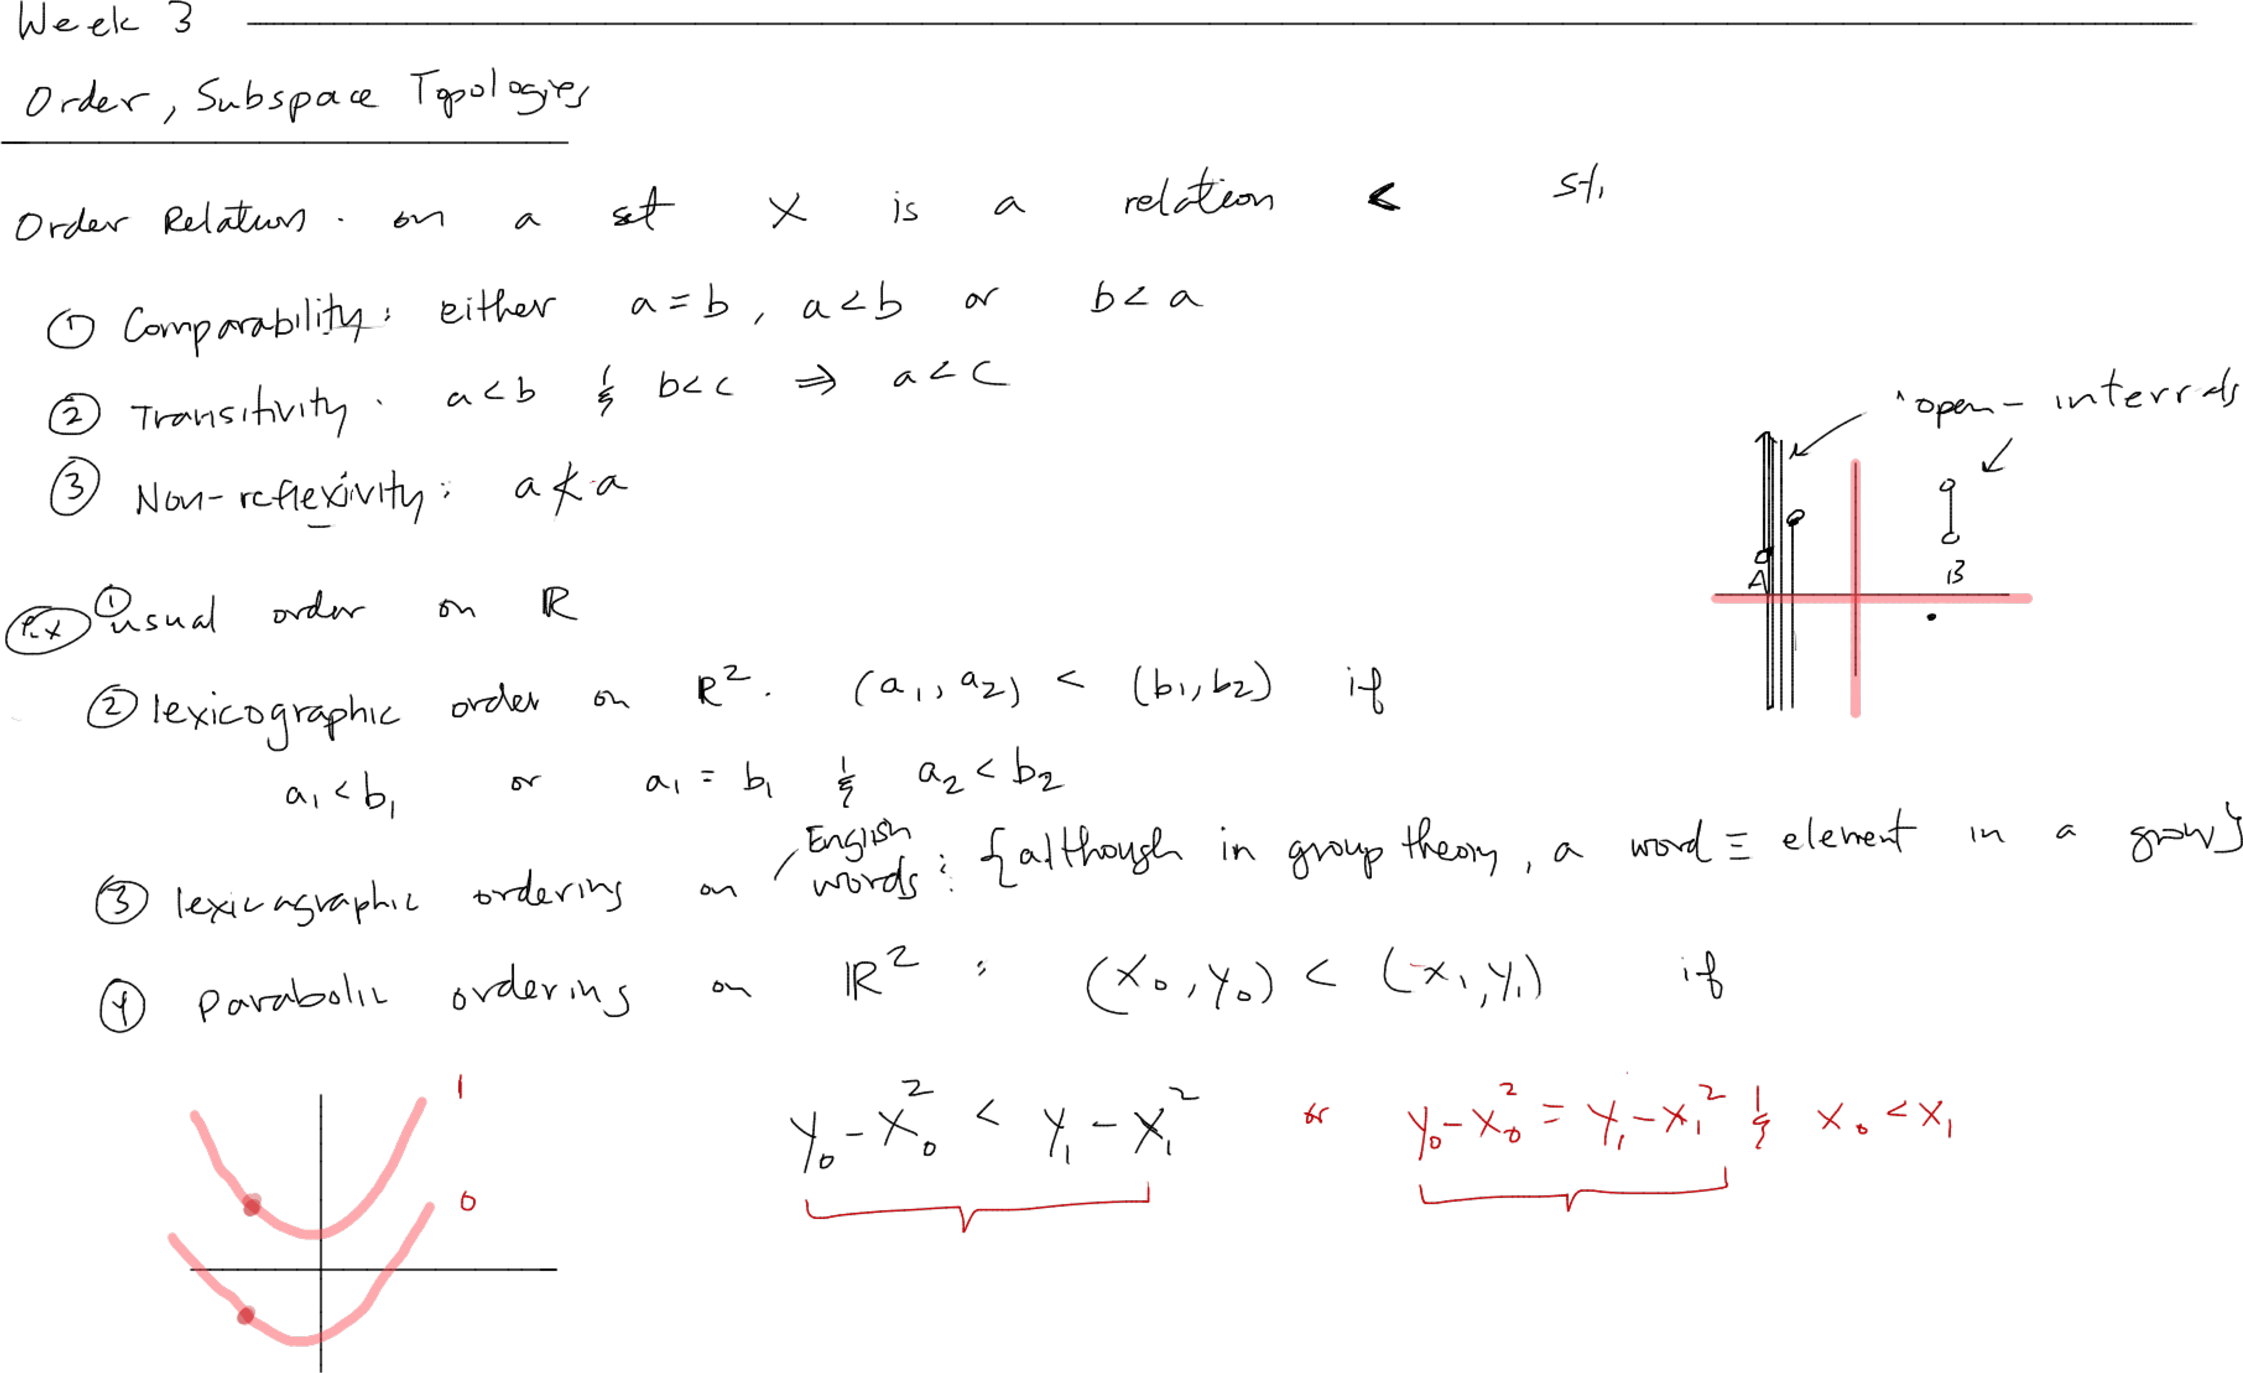 Week 3
Order, Subspace Topologies
Order Relation. on a set X is a relation < s.t.
① Comparability: either a = b, a < b or b < a
② Transitivity. a < b & b < c ⇒ a < c
"open-intervals
③ Non-reflexivity: a ≮ a
A
B
Ex ① usual order on ℝ
② lexicographic order on ℝ². (a₁, a₂) < (b₁, b₂) if
a₁ < b₁ or a₁ = b₁ & a₂ < b₂
③ lexicographic ordering on English words: {although in group theory, a word ≡ element in a group}
④ Parabolic ordering on ℝ²: (x₀, y₀) < (x₁, y₁) if
1
y₀ - x₀² < y₁ - x₁² or y₀ - x₀² = y₁ - x₁² & x₀ < x₁
0